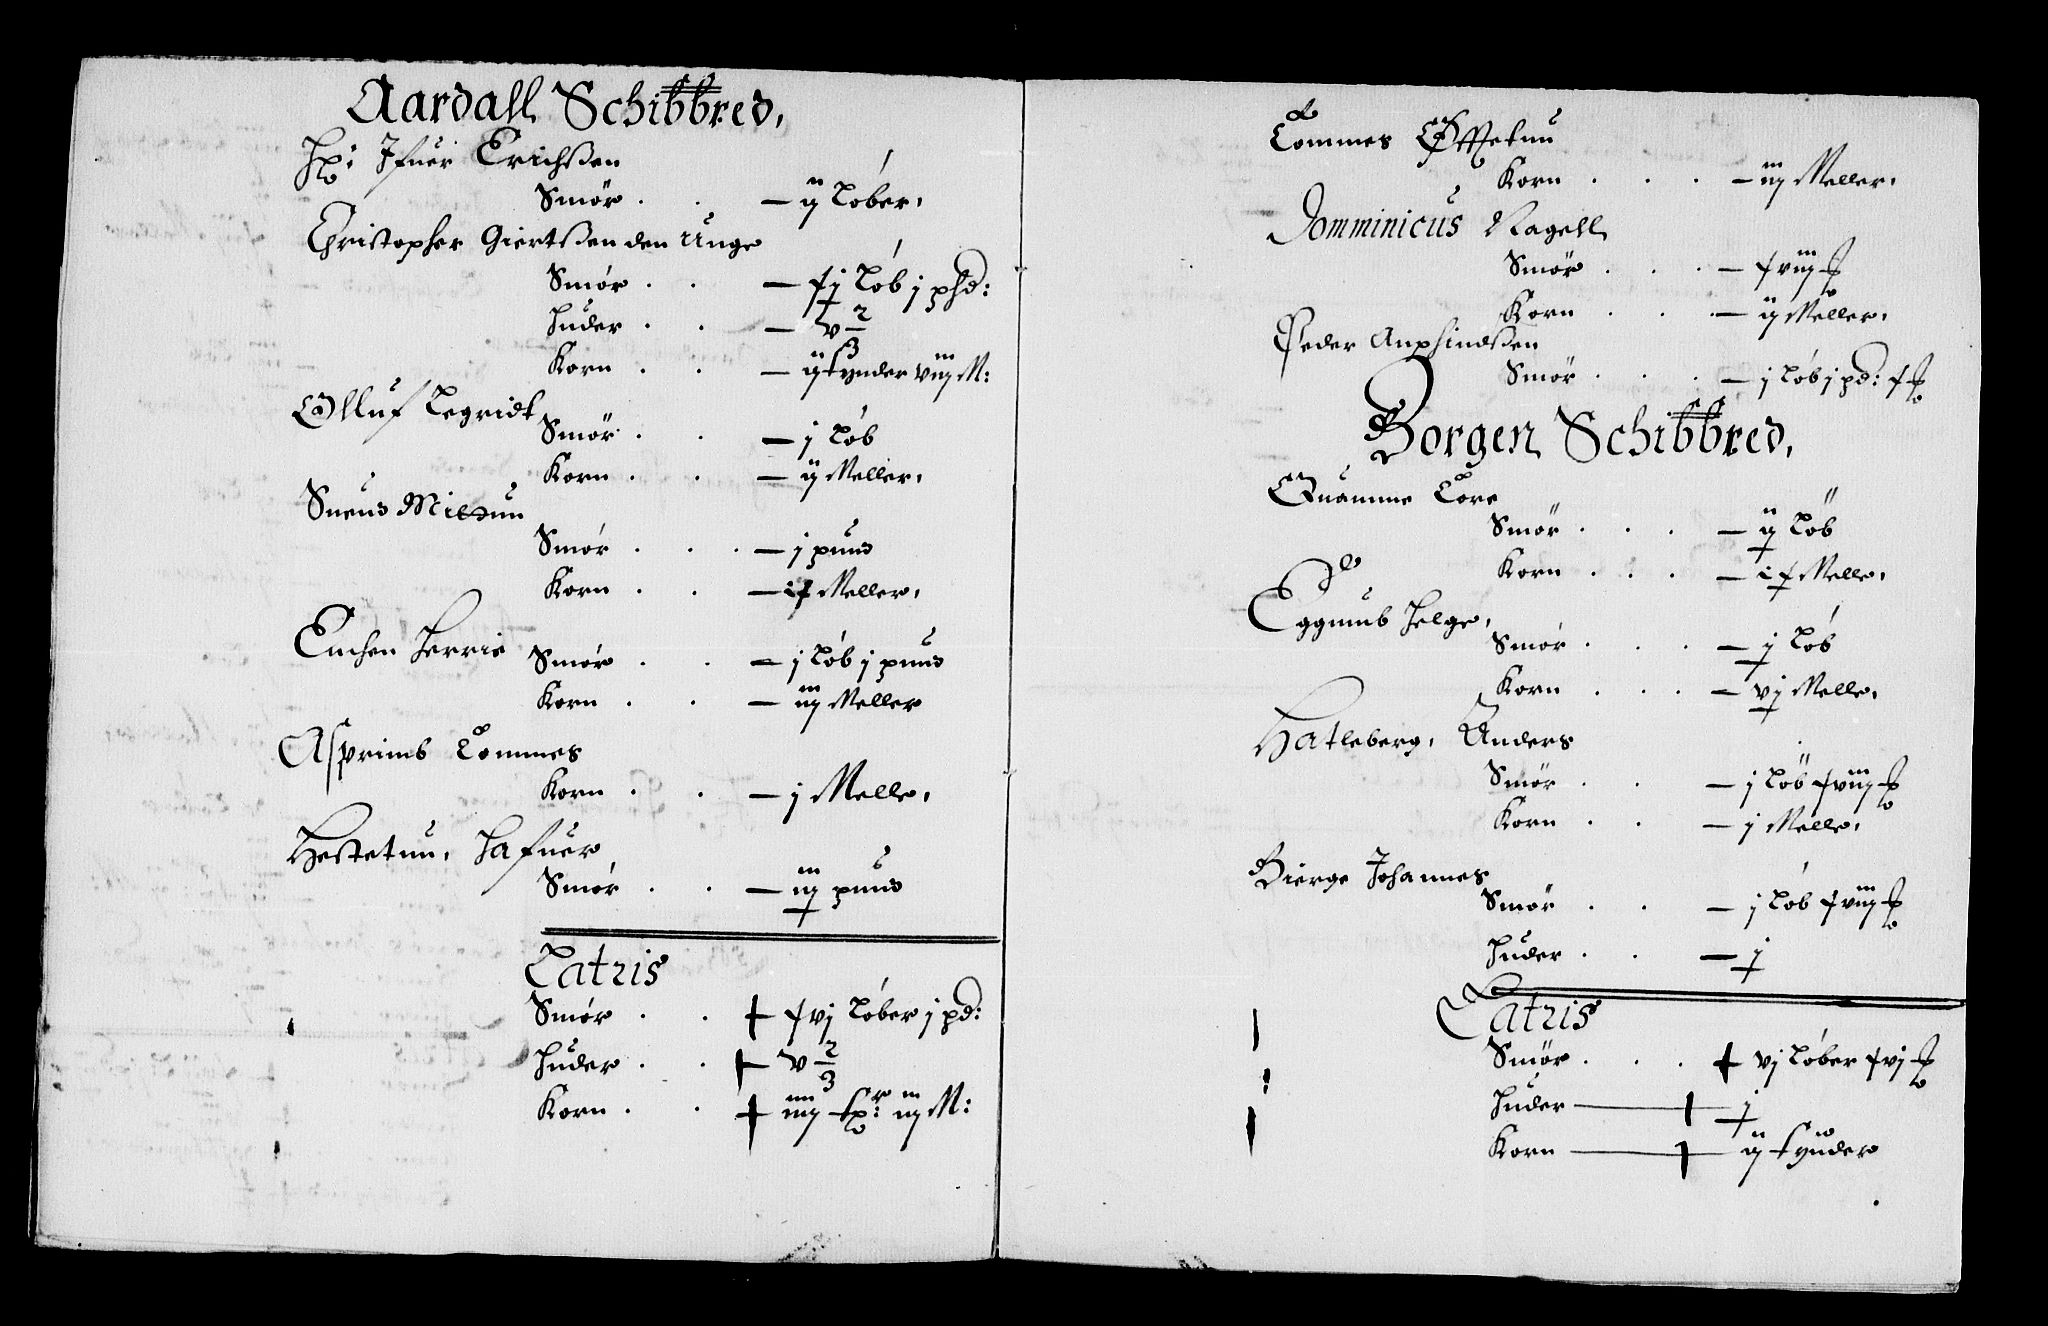 Aardall Schibbred,
Hr: Ifuer Erichßen
Smør . . — ij Løber,
Christopher Giertßen den Unge
Smør . . — ½ Løb j phd:
Huder . . — v 2/3
Korn . . — ij tynder viij M:
Olluf Legridt
Smør . . — j Løb
Korn . . — ij Meller,
Suend Miltun
Smør . . . — j pund
Korn . . — i½ Meller,
Euchen Herrie
Smør . . — j Løb j pund
Korn . . — iij Meller
Asprimb Tommes
Korn . . — j Melle,
Hestetun, Hafuer
Smør . . — iij pund
Latris
Smør . . — xvj Løber j pd:
Huder . . — v 2/3
Korn . . — iiij tr: iij M:
Tommes Øffretun
Korn . . . — iij Meller,
Domminicus Nagell
Smør . . . — xviij
Korn . . . — ij Meller,
Peder Anphindßen
Smør . . . — j Løb j pd:
Borgen Schibbred,
Quamme Tore
Smør . . . — ij Løb
Korn . . . — i½ Melle,
Eggumb Helge,
Smør . . . — j Løb
Korn . . . — vj Melle,
Hatleberg, Anders
Smør . . — j Løb xviij
Korn . . — j Melle,
Bierge Johannes
Smør . . — j Løb xviij
Huder . . — j
Latris
Smør . . . — vj Løber xvj
Huder — j
Korn — ij tynder